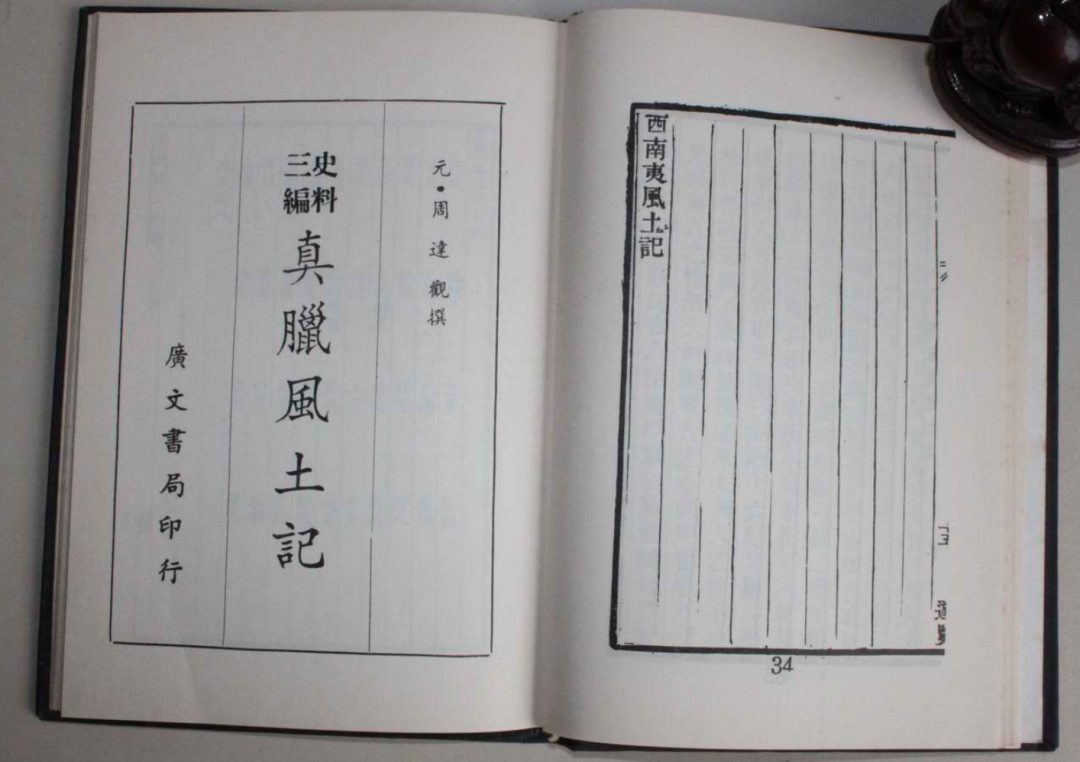 西南夷風土記
34
元•周達觀撰
史料三編真臘風土記
廣文書局印行